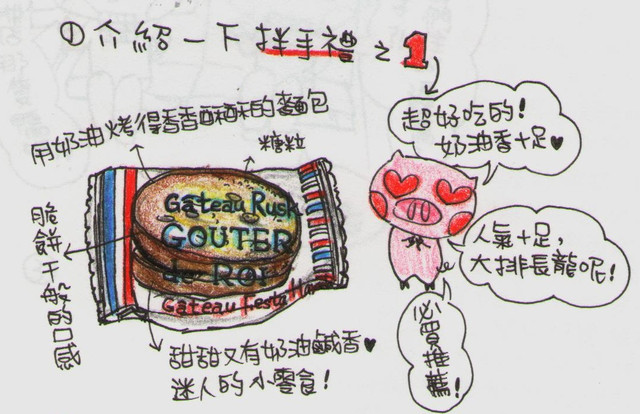 ① 介紹一下 拌手禮 之 1
超好吃的!
奶油香十足♥
用奶油烤得香香酥酥的麵包
糖粒
Gateau Rusk
GOUTER
de Roi
Gateau Festa Ha
脆餅干般的口感
人氣十足,
大排長龍呢!
甜甜又有奶油鹹香♥
迷人的小零食!
必買推薦!